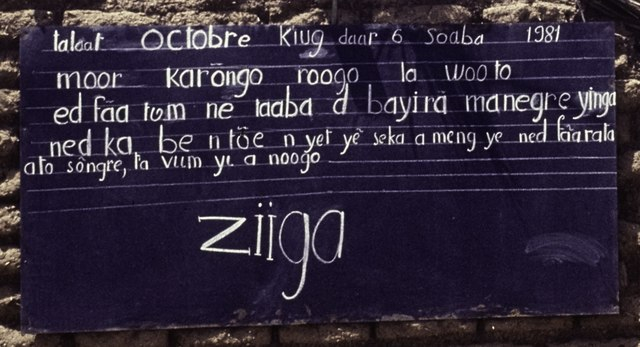 talaat OCTObRe Kiug daar 6 Soaba 1981
moor karōngo roogo la wooto
ed fãa tʋm ne taaba d bayirã manegre yĩnga
ned ka be n tõe n yet yẽ seka a meng ye ned fãa rata
ato sôngre, ta vɩɩm yɩ a noogo
ziiga